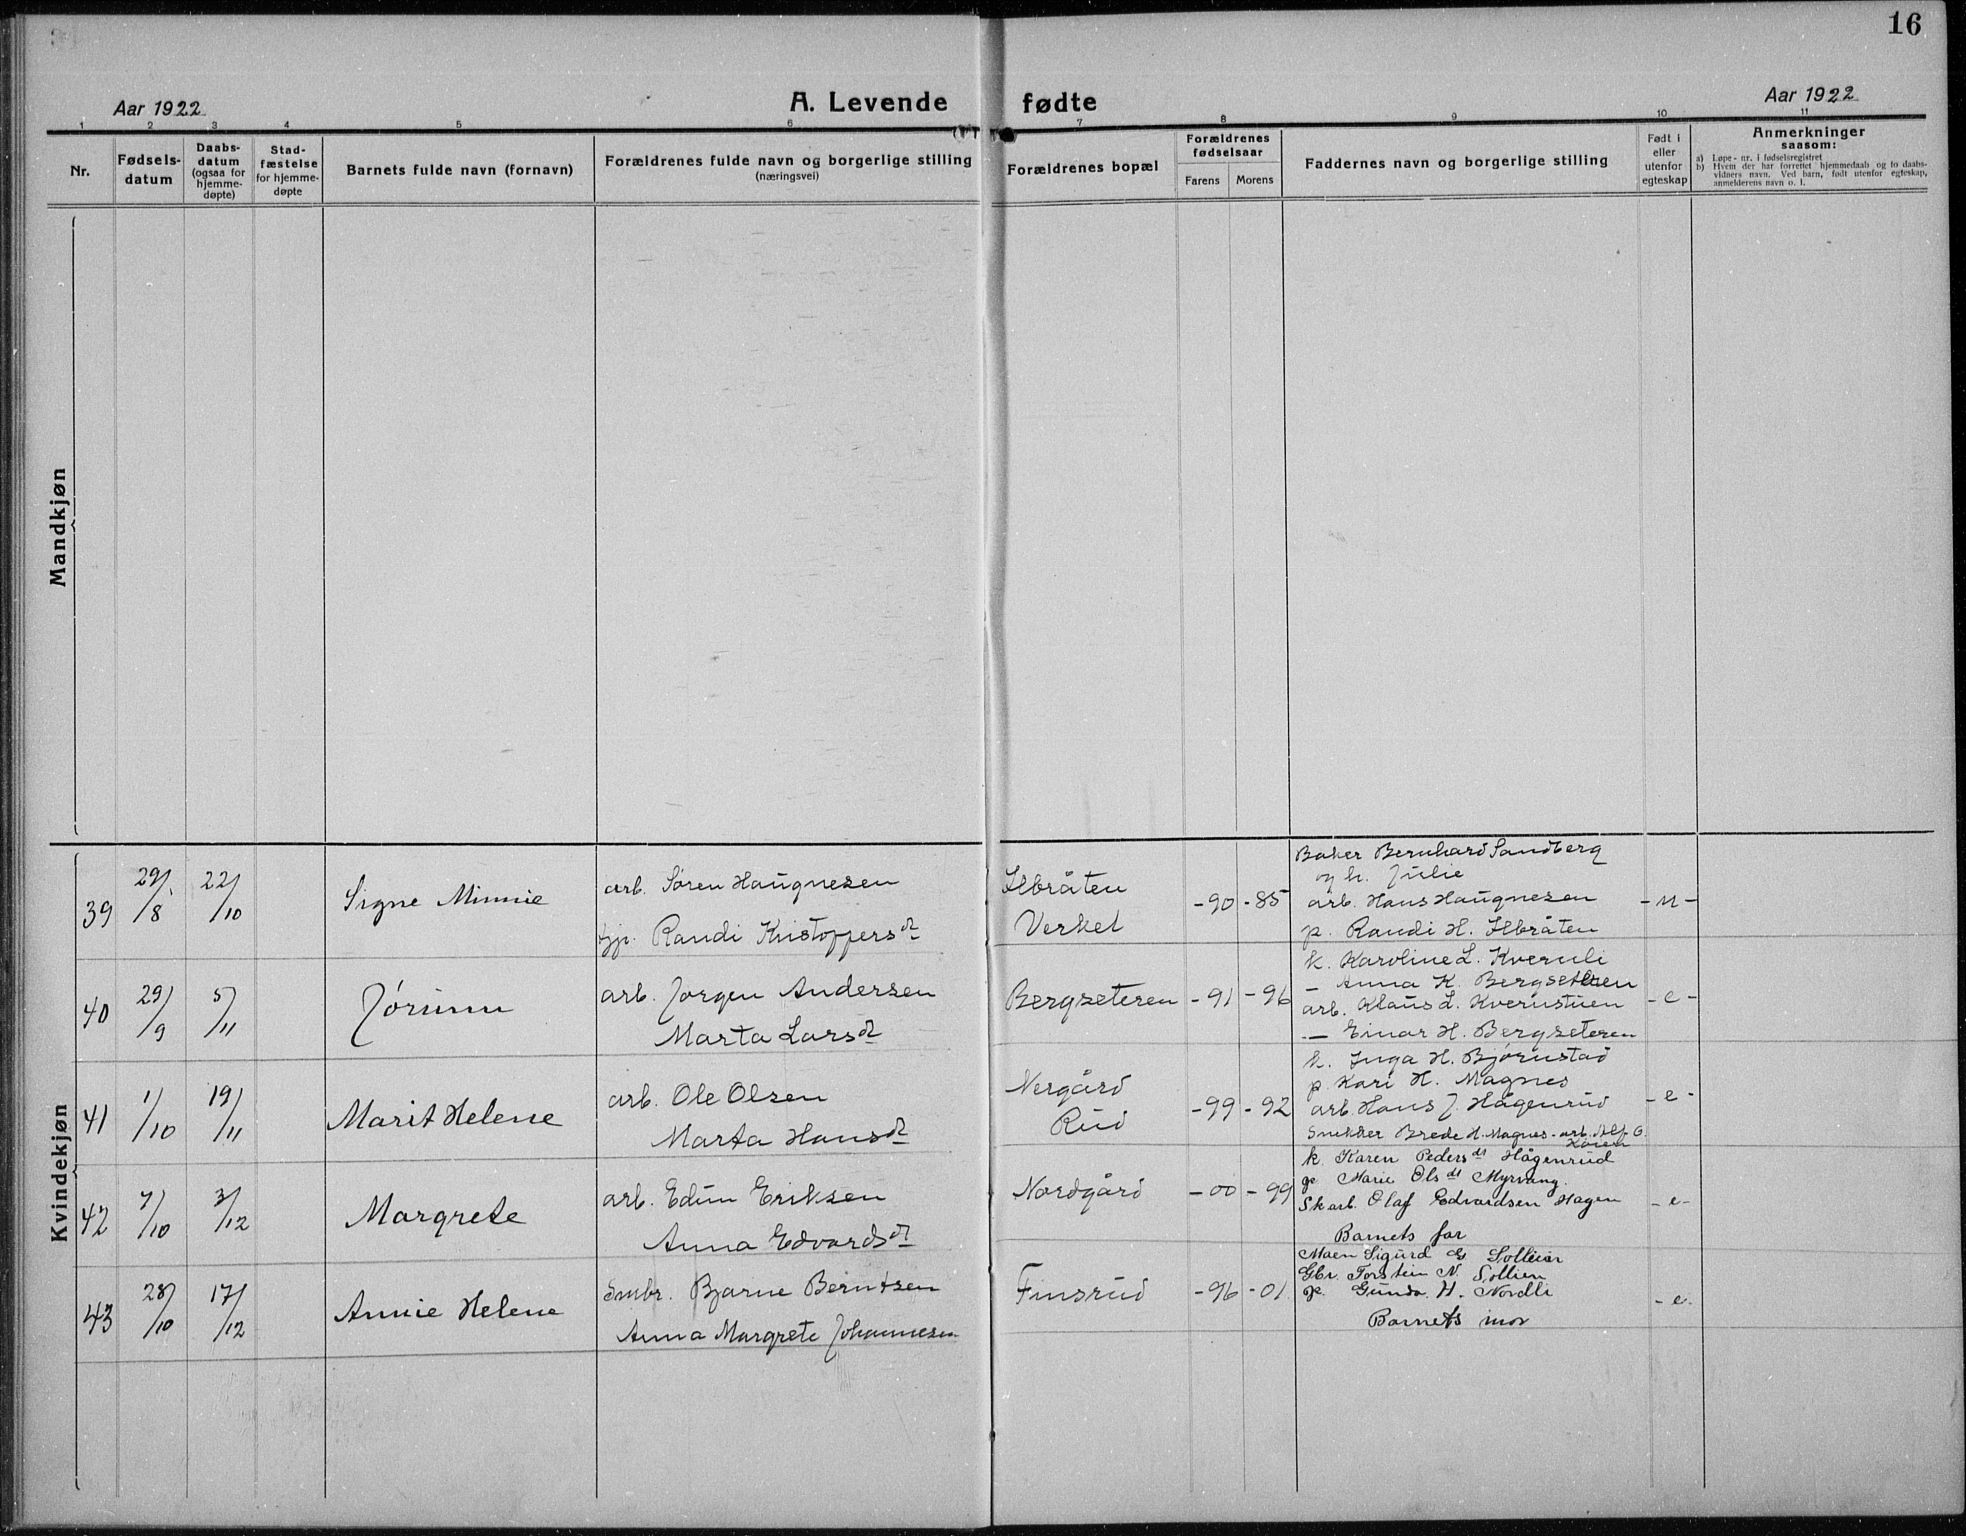 16
Aar 1922
A. Levende fødte
Aar 1922
1 2 3 4 5 6 7 8 9 10 11
Nr.
Fødsels-
datum
Daabs-
datum
(ogsaa for
hjemme-
døpte)
Stad-
fæstelse
for hjemme-
døpte
Barnets fulde navn (fornavn)
Forældrenes fulde navn og borgerlige stilling
(næringsvei)
Forældrenes bopæl
Forældrenes
fødselsaar
Farens
Morens
Faddernes navn og borgerlige stilling
Født i
eller
utenfor
egteskap
Anmerkninger
saasom:
a) Løpe-nr. i fødselsregistret
b) Hvem der har forrettet hjemmedaab og to daabs-
vidners navn. Ved barn, født utenfor egteskap,
anmelderens navn o. l.
Mandkjøn
Kvindekjøn
39
29/8
22/10
Signe Minnie
arb. Søren Haugnesen
Randi Kristoffersd
Ilbråten
Verket
-90
-85
Baker Bernhard Sandberg
og h. Julie
arb. Hans Haugnesen
p. Randi H. Ilbråten
- u -
40
29/9
5/11
Jørunn
arb. Jørgen Andersen
Marta Larsd
Bergseteren
-91
-96
k. Karoline L. Kvernli
— Anna K. Bergseteren
arb. Klaus L. Kvernstuen
— Einar H. Bergseteren
- e -
41
1/10
19/11
Marit Helene
arb. Ole Olsen
Marta Hansd
Nergård
Rud
-99
-92
k. Inga H. Bjørnstad
p. Kari H. Magnes
arb. Hans J. Hågenrud
Snekker Brede H. Magnes - arb. Alf O.
- e -
42
7/10
3/12
Margrete
arb. Edin Eriksen
Anna Edvardsd
Nordgård
-00
-99
k. Karen Pedersdt Hågenrud
p. Marie Olsdt Myrvang.
Skarb. Olaf Edvardsen Hagen
Barnets far
- e -
43
28/10
17/12
Annie Helene
Smbr. Bjarne Berntsen
Anna Margrete Johannesen
Finsrud
-96
-01
Sigurd G. Sollien
Gbr. Torstein N. Sollien
p. Gunda H. Nordli
Barnets mor
- e -